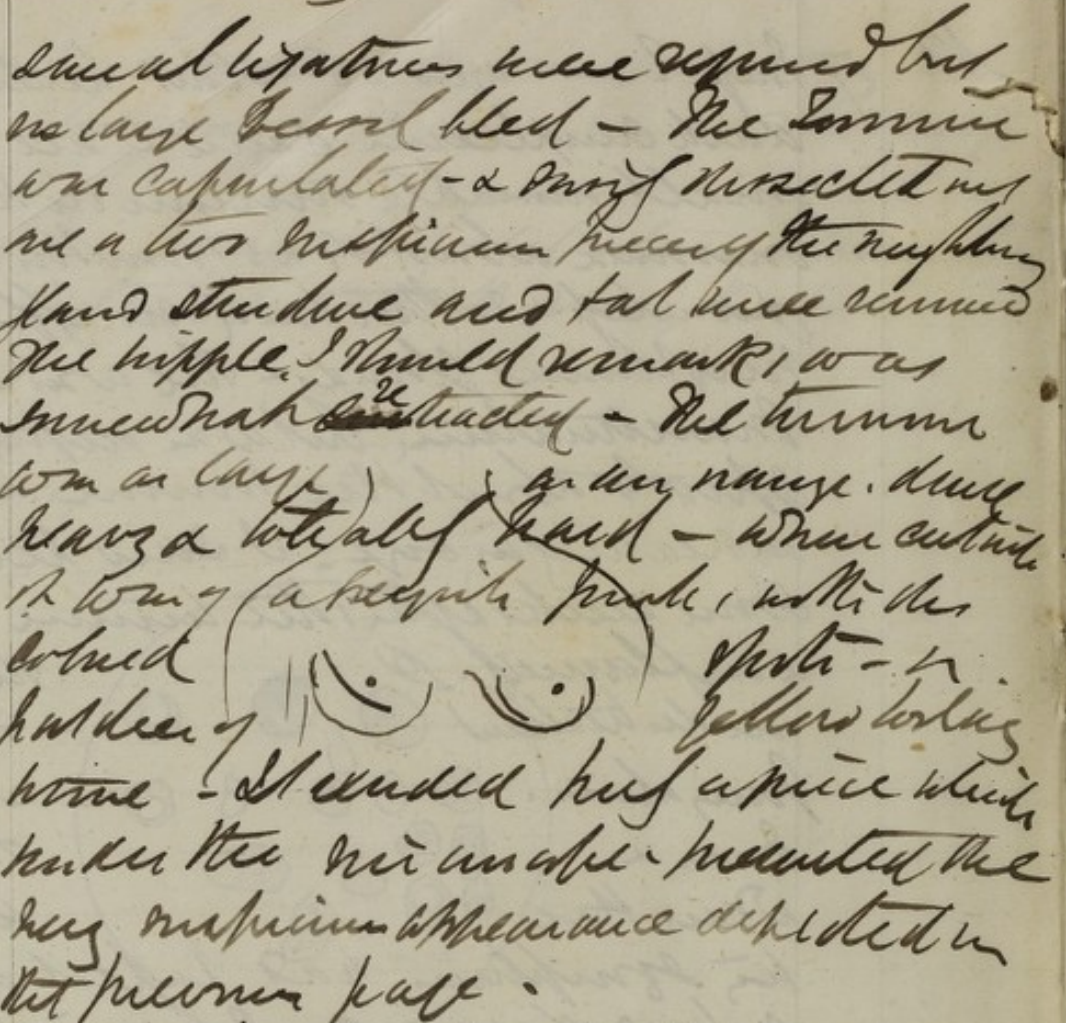 several ligatures were required but
no large vessel bled – The Tumour
was capsulated – & easily dissected out
one or two suspicious pieces of the neighbouring
gland structure and fat were removed
The nipple, I should remark, was
somewhat retracted – The tumour
was as large as an orange. dense
heavy & totally hard – when cut into
it was of a freyish pink, with dis
coloured spots – in
hardness of yellow looking
– It exuded pus of a juice which
under the microscope – presented the
very suspicious appearance depicted in
the previous page.